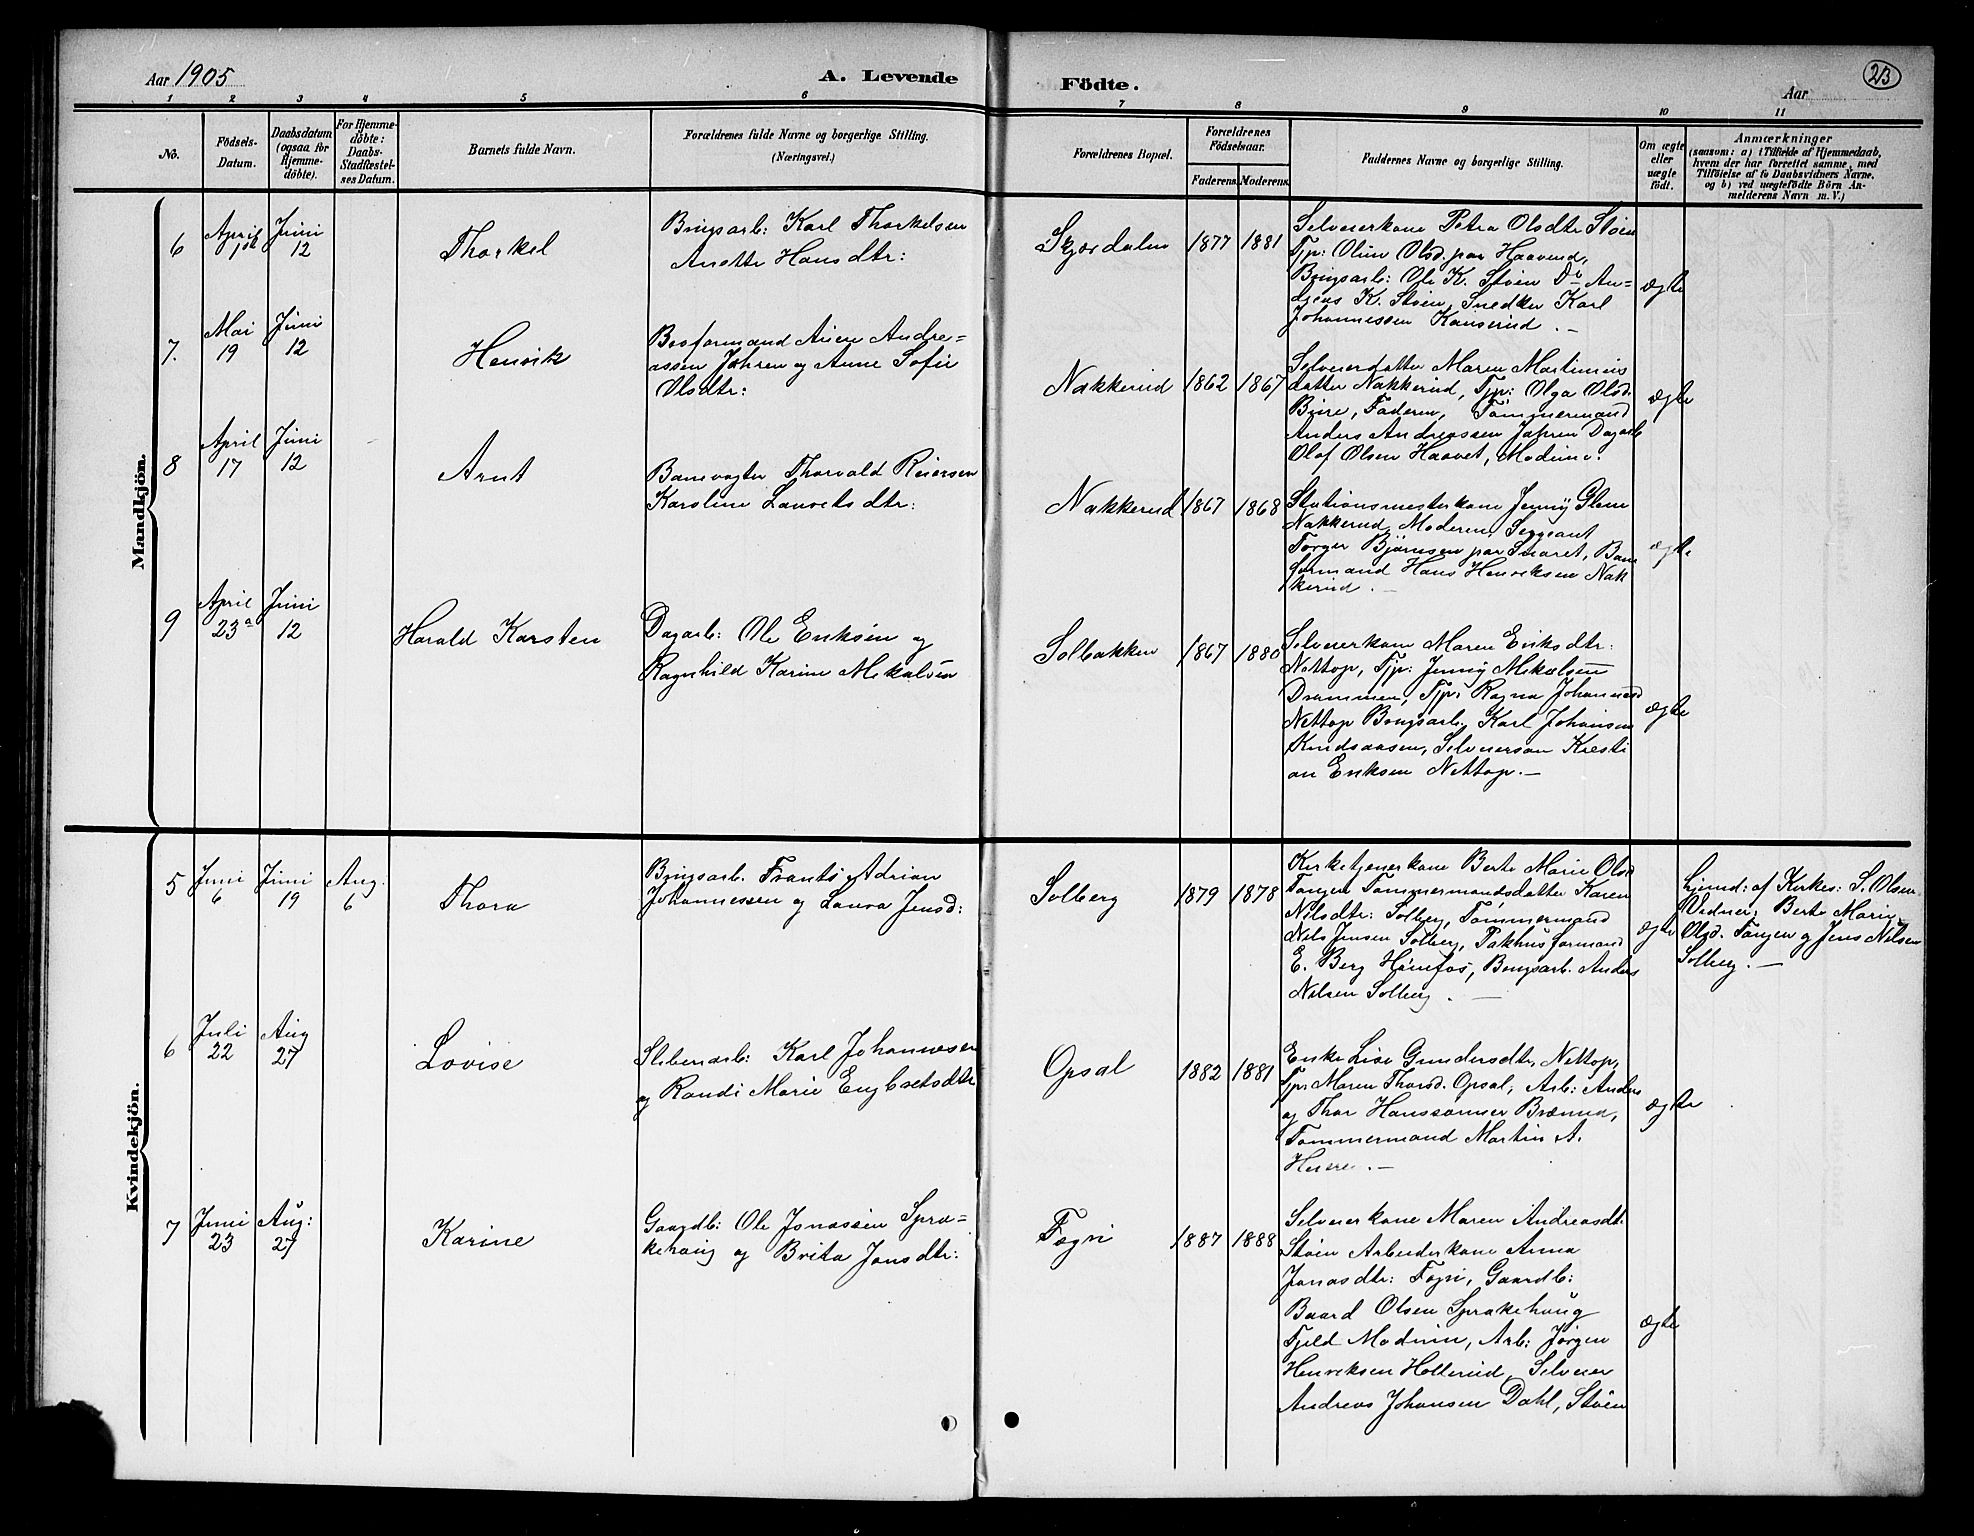 Aar 1905
A. Levende
Födte.
23
Aar
1 2 3 4 5 6 7 8 9 10 11
No.
Födsels-
Datum.
Daabsdatum
(ogsaa for
Hjemme-
döbte).
For Hjemme-
döbte:
Daabs-
Stadfæstel-
ses Datum.
Barnets fulde Navn.
Forældrenes fulde Navne og borgerlige Stilling.
(Næringsvei.)
Forældrenes Bopæl.
Forældrenes
Födselsaar.
Faderens. Moderens.
Faddernes Navne og borgerlige Stilling.
Om ægte
eller
uægte
födt.
Anmærkninger
(saasom: a) i Tilfælde af Hjemmedaab,
hvem der har forrettet samme, med
Tilföielse af to Daabsvidners Navne.
og b) ved uægtefödte Börn An-
melderens Navn m. V.)
Mandkjön.
6
April
1st
Juni
12
Thorkel
Brugsarb: Karl Thorkelsen
Anette Hansdtr:
Skjærdalen
1877
1881
Selveierkone Petra Olsdtr Støen
Tjp: Oline Olsd. paa Haaverud,
Brugsarb: Ole K. Støen Do An=
dreas K. Støen, Snedker Karl
Johannessen
ægte
7.
Mai
19
Juni
12
Henrik
Andre=
assen Jahren og Anne Sofie
Olsdtr:
Nakkerud
1862
1867
Selveierdatter Maren Martinius
datter Nakkerud, Tjp: Olga Olsd.
Bure, Faderen, Tømmermand
Anders Andreassen Jahren Dagarb
Olaf Olsen Haavet, Modum.
ægte
8
April
17
Juni
12
Arnt
Banevogter Thorvald Reiersen
Karoline Lauretsdtr:
Nakkerud
1867
1868
Stationsmesterkone Jenny Glem
Nakkerud, Moderen, Sergeant
Torger Bjørnsen paa Snaret, Bane
formand Hans Henriksen Nak
kerud. -
ægte
9
April
23a
Juni
12
Harald Karsten
Dagarb: Ole Eriksen og
Ragnhild Karine Mikalsen
Solbakken
1867
1880
Selveierkone Maren Eriksdtr:
Nettop, Tjp: Jenny Mikælsen
Drammen, Tjp: Ragna Johannesd
Nettop Brugsarb. Karl Johansen
Knudsaasen, Selveiersøn Kristi
an Eriksen Nettop. -
ægte
Kvindekjön.
5
Juni
6
Juni
19
Aug.
6
Thora
Brugsarb. Frants Adrian
Johannessen og Laura Jensd:
Solberg
1879
1878
Kirketjenerkone Berte Marie Olsd
Tangen Tømmermandsdatter Karen
Nilsdtr: Solberg, Tømmermand
Nils Jensen Solberg, Pakhusformand
E. Berg Hønefos, Brugsarb. Anders
Nilsen Solberg. -
ægte
hjemd: af Kirkes: S. Olsen.
Vidner: Berte Marie
Olsd. Tangen og Jens Nilsen
Solberg. -
6
Juli
22
Aug
27
Lovise
Sliberiarb: Karl Johannesen
og Randi Marie Engbretsdtr
Opsal
1882
1881
Enke Lise Gundersdtr, Nettop,
Tjp: Maren Thorsd. Opsal, Arb: Anders
og Thor Hanssønner
Tømmermand Martin A.
ægte
7
Juni
23
Aug:
27
Karine
Gaardb: Ole Jonassen Spra=
kehaug og Brita Jonsdtr:
Fagri
1887
1888
Selveierkone Maren Andreasdt.
Støen Arbeiderkone Anna
Jonasdtr: Fagri, Gaardb:
Baard Olsen Sprakehaug
Fjeld Modum, Arb: Jørgen
Henriksen Hollerud, Selveier
Andreas Johansen Dahl, Støen
ægte